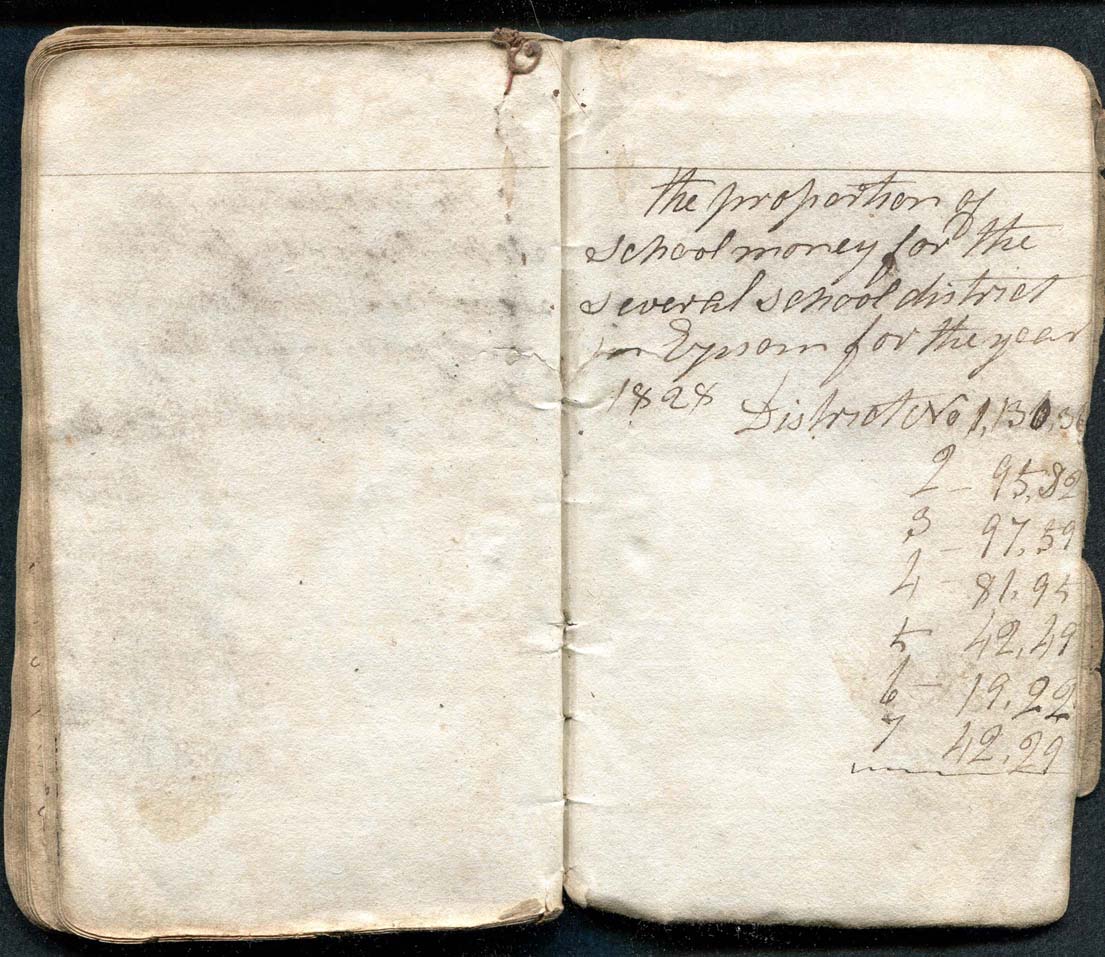 the proportion of
school money for the
several school district
in Epsom for the year
1828 District No 1, 130,36
2 - 95,82
3 - 97,59
4 - 81,95
5 42,49
6 - 19,22
7 42,29